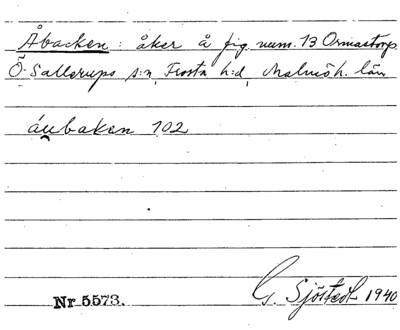 Åbacken: åker å fig. num. 13 Ormastorp
Ö. Sallerups s:n, Frosta h:d, Malmöh. län
áu̲baken 102
Nr 5573.
G. Sjöstedt 1940